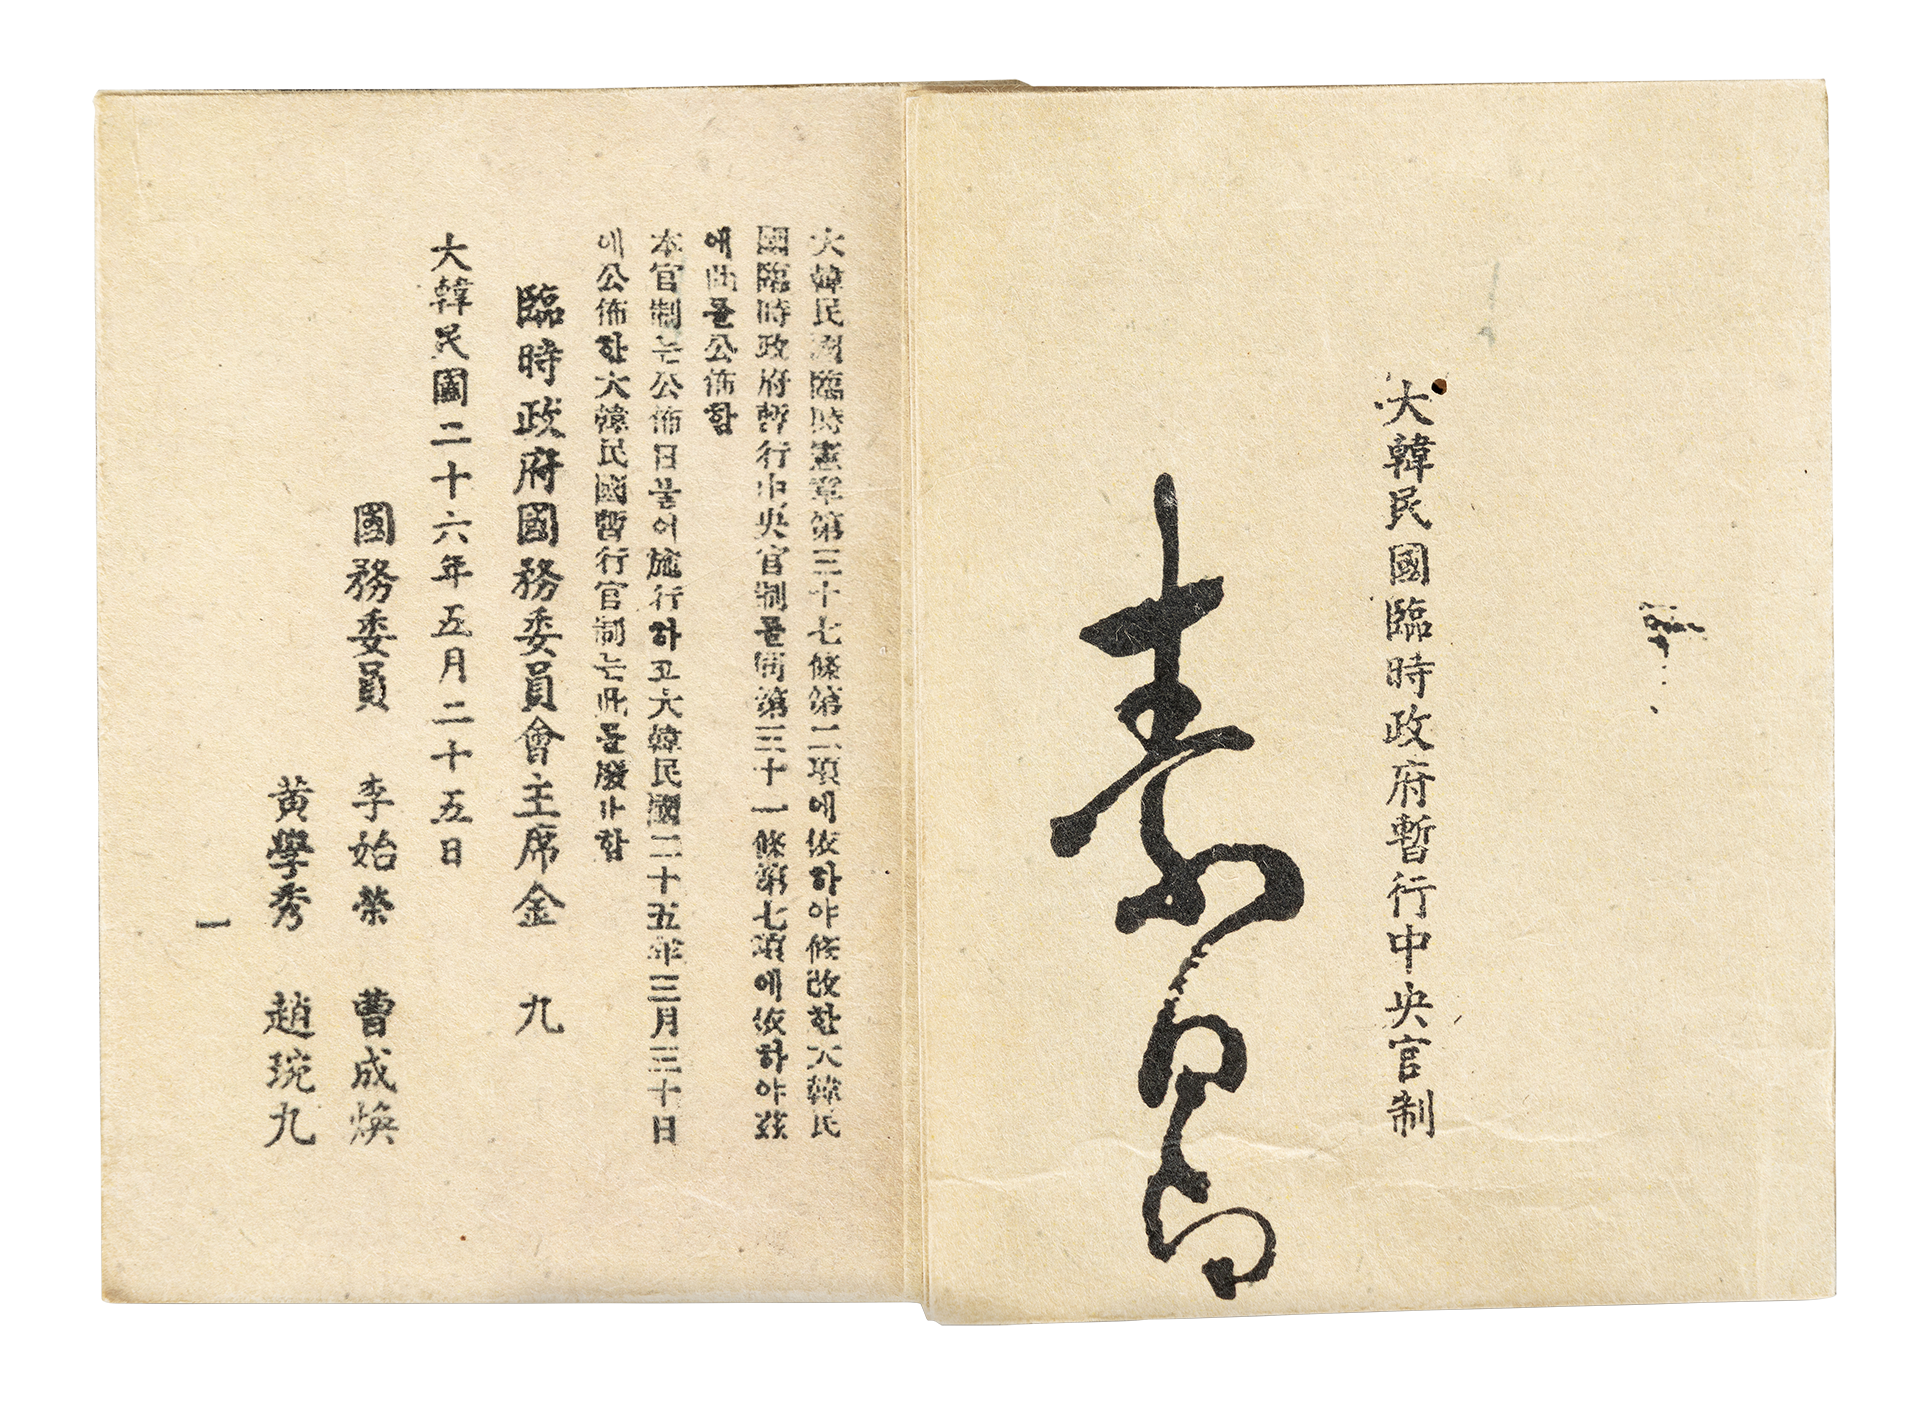 大韓民國臨時政府暫行中央官制
大韓民國臨時憲章第三十七條第二項에依하야修改한大韓民
國臨時政府暫行中央官制를同第三十一條第七項에依하야玆
에此를公佈함
本官制는公佈日붙어施行하고大韓民國二十五年三月三十日
에公佈한大韓民國暫行官制는此를廢止함
臨時政府國務委員會主席金 九
大韓民國二十六年五月二十五日
國務委員 李始榮 曹成煥
黃學秀 趙琬九
一